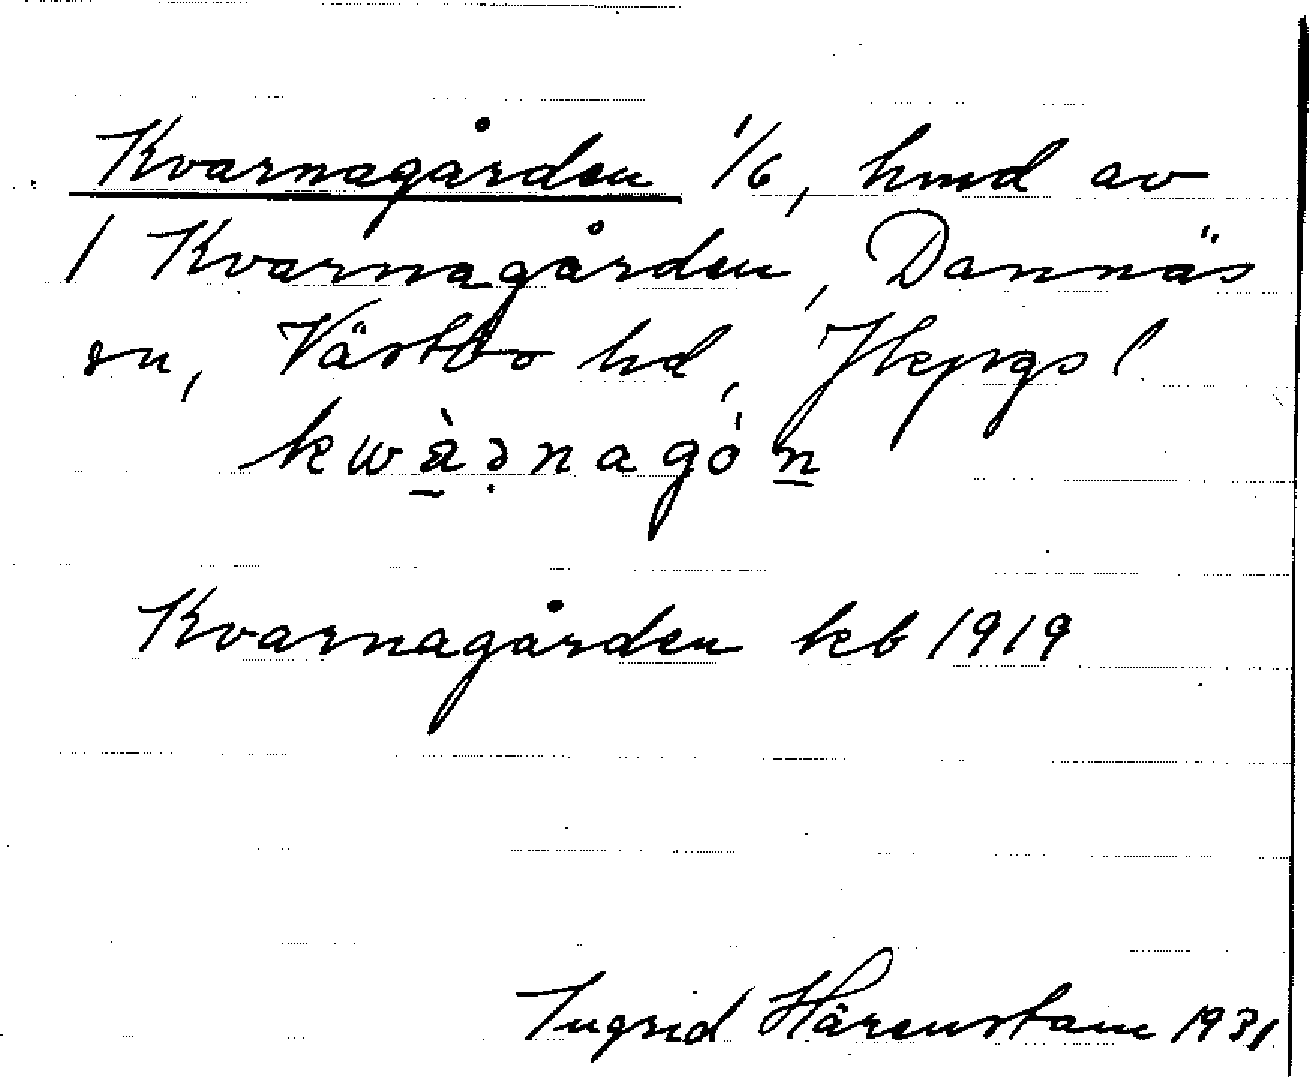 Kvarnagården 1/6, hmd av
1 Kvarnagården, Dannäs
sn, Västbo hd, Jkpgs l
kwàrnagón
Kvarnagården kb 1919
Ingrid Härenstam 1931